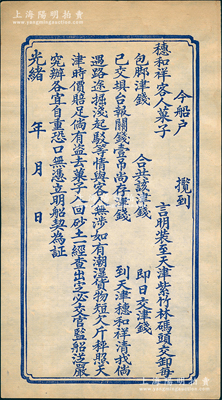 上海陽明拍賣
今船户　　　　攬到
穗和祥客人菓子　　　言明裝至天津紫竹林碼頭交卸每
包脚津錢　　　合共該津錢　　　即日交津錢
已交填台報關錢壹吊尚存津錢　　　到天津穗和祥清找倘
遇路途掘淺起駁等情與客人無涉如有潮濕貨物短欠斤秤照大
津時價賠足倘有盜去菓子入回砂土經查出定必交官監船送嚴
究辦各宜自重恐口無憑立明船契為証
光緒　　年　　月　　日